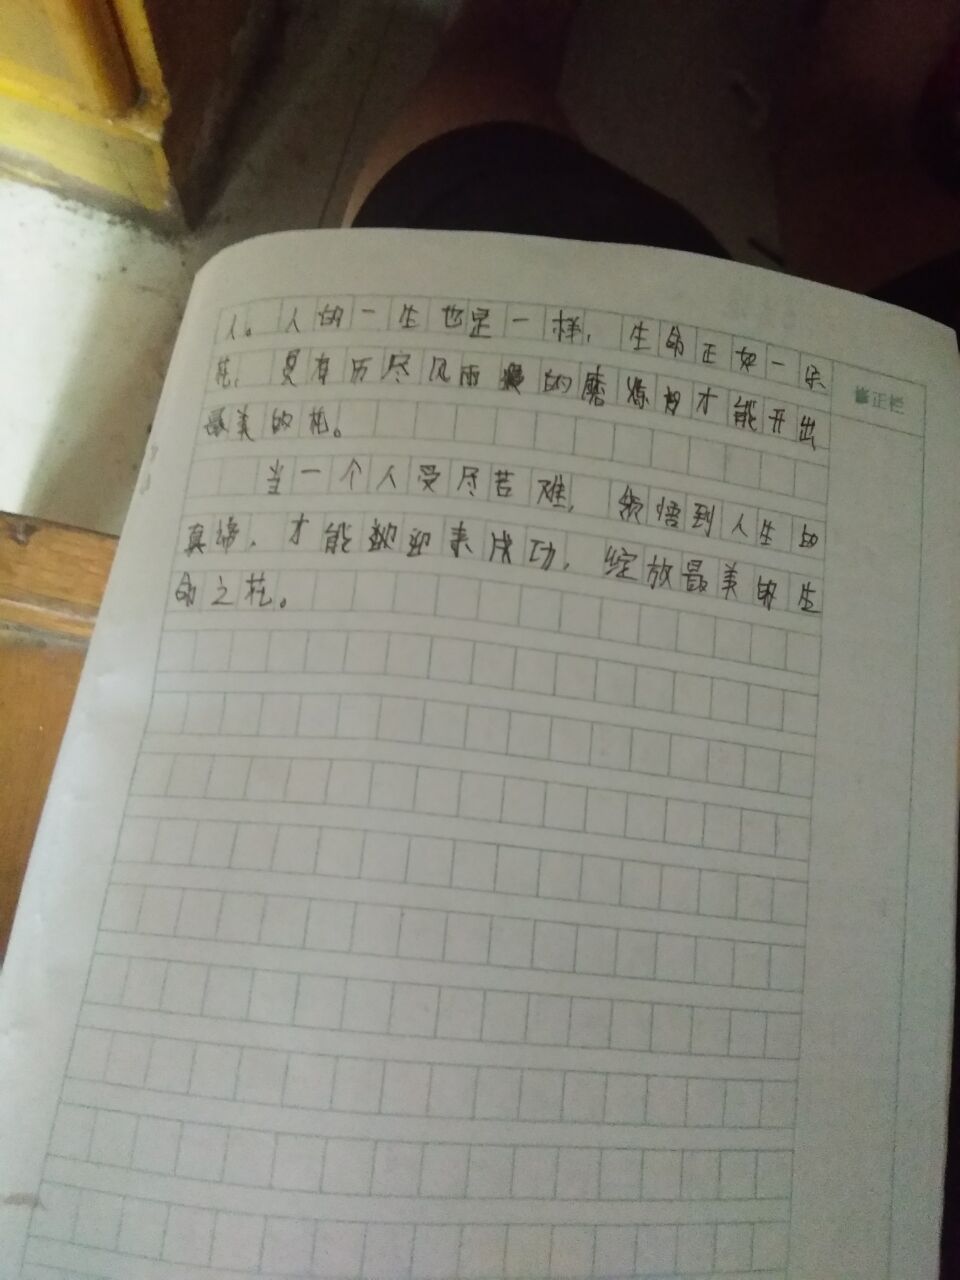 人。人的一生也是一样，生命正如一朵
花，只有历尽风雨的磨炼才能开出
最美的花。
当一个人受尽苦难，领悟到人生的
真谛，才能迎来成功，绽放最美的生
命之花。
修正栏